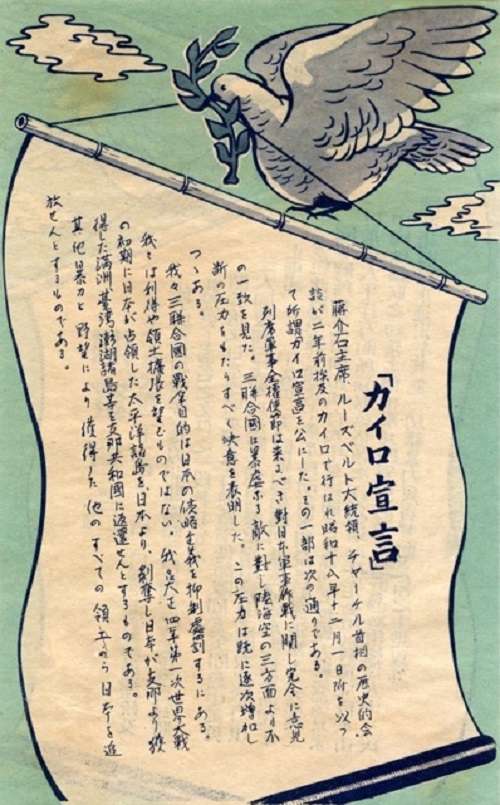 「カイロ宣言」
蔣介石主席、ルーズベルト大統領、チャーチル首相の歴史的会
談が二年前埃及のカイロで行はれ昭和十八年十二月一日附を以つ
て所謂カイロ宣言を公にした。その一部は次の通りである。
列席軍事全権使節は来るべき対日本軍事作戦に関し完全に意見
の一致を見た。三聯合國は暴虐なる敵に対し陸海空の三方面より不
断の圧力をもたらすべく決意を表明した。この圧力は既に逐次増加し
つゝある。
我々三聯合國の戰争目的は日本の侵略主義を抑制處罰するにある。
我々は利得や領土擴張を望むものではない。我々は大正四年第一次世界大戰
の初期に日本が占領した太平洋諸島を日本より剝奪し日本が支那より獲
得した満洲臺湾澎湖諸島等を支那共和國に返還せんとするものである。
其他暴力と野望により獲得した他のすべての領土から日本を追
放せんとするものである。